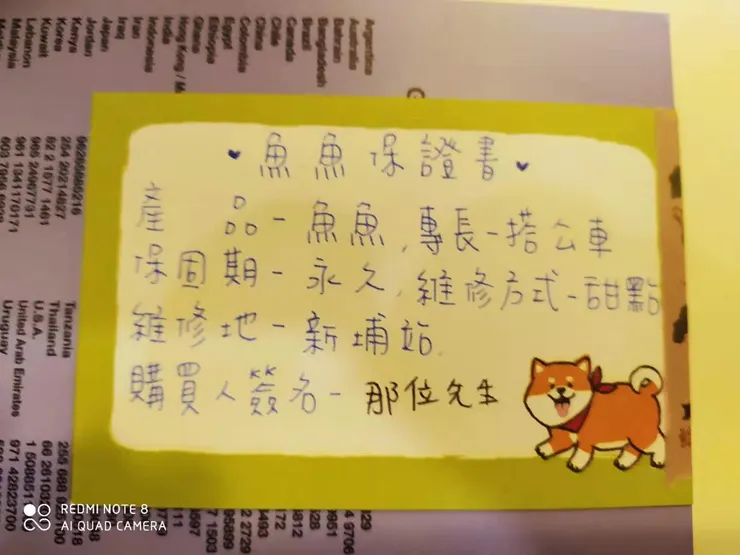 魚魚保證書
產 品－魚魚,專長－搭公車
保固期－永久,維修方式－甜點
維修地－新埔站.
購買人簽名－那位先生
Argentina
Australia
Bahrain
Bangladesh
Brazil
Canada
Chile
China
Colombia
Egypt
Ethiopia
Ghana
Hong Kong / M
India
Indonesia
Iran
Iraq
Japan
Jordan
Kenya
Korea
Kuwait
Lebanon
Malaysia
254 20214827
82 2 1877 1461
965 24967791
961 1341170171
Tanzania
Thailand
U.S.A.
United Arab Emirates
Uruguay
971 42823700
REDMI NOTE 8
AI QUAD CAMERA